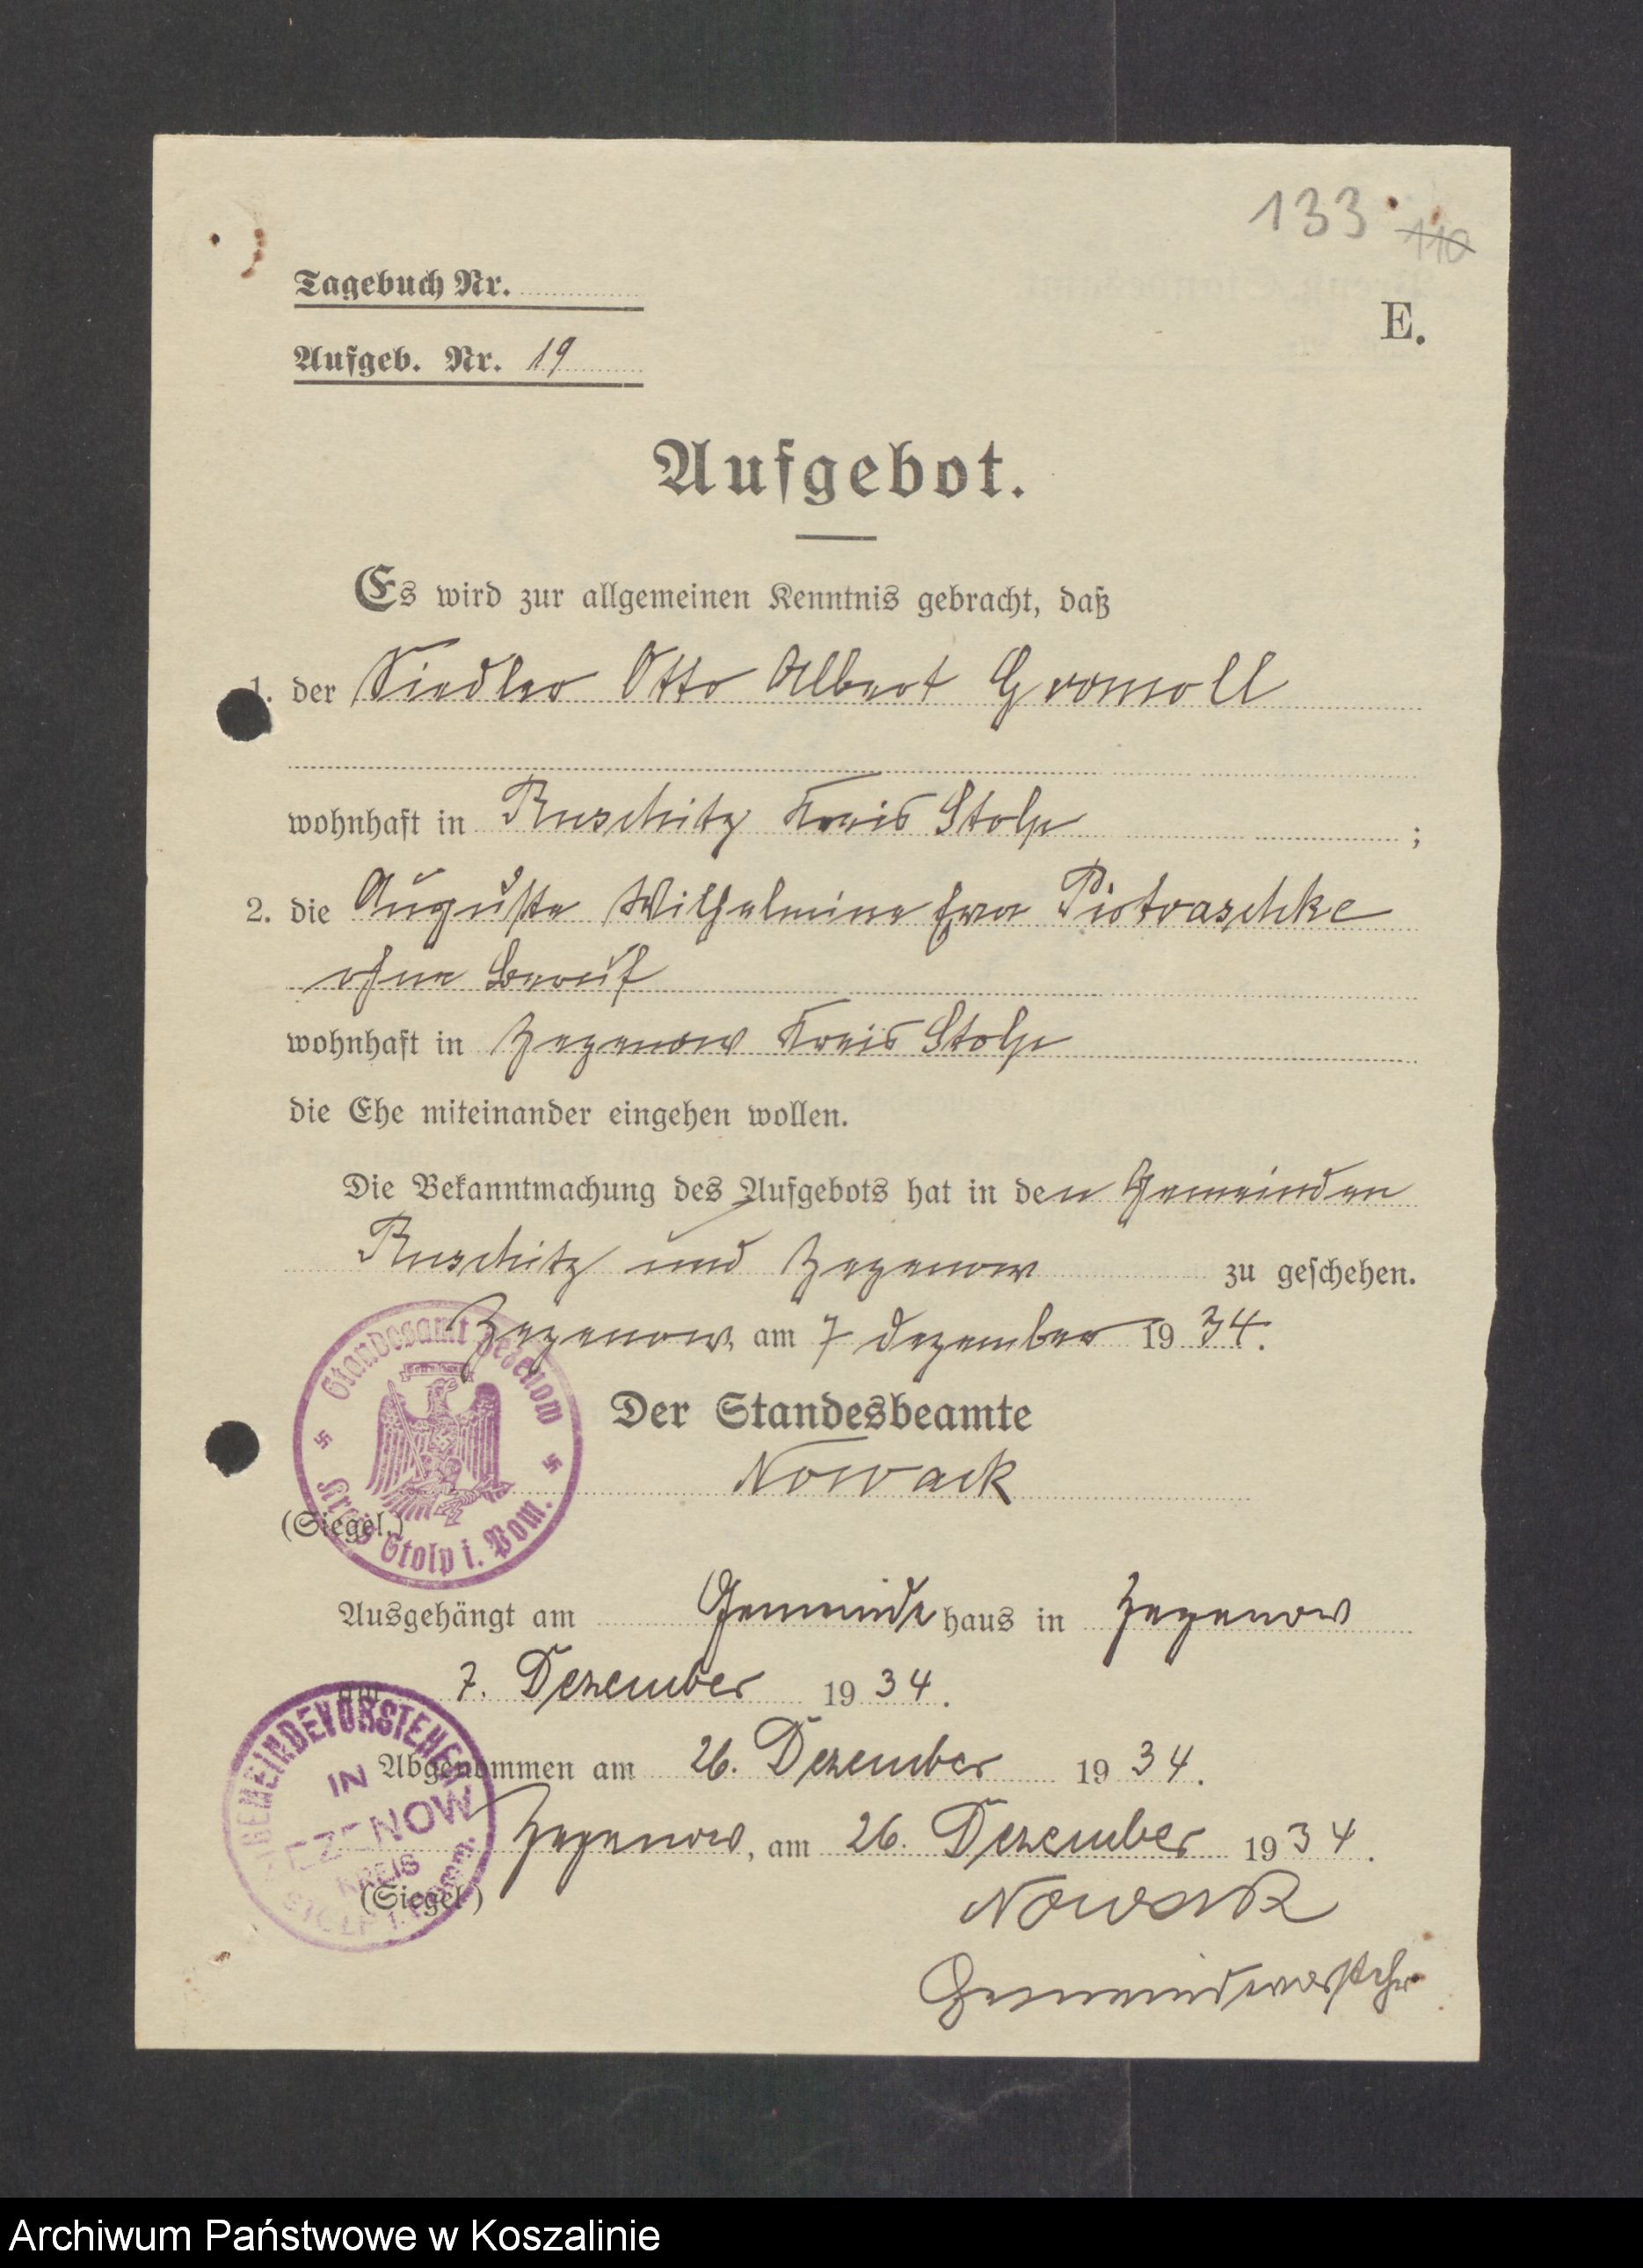 133 110
Tagebuch Nr.
E.
Aufgeb. Nr. 19
Aufgebot.
Es wird zur allgemeinen Kenntnis gebracht, daß
1. der Siedler Otto Albert Gromoll
wohnhaft in Ruschitz Kreis Stolp ;
2. die Auguste Wilhelmine Ewa Piotraschke
ohne Beruf
wohnhaft in Zezenow Kreis Stolp
die Ehe miteinander eingehen wollen.
Die Bekanntmachung des Aufgebots hat in den Gemeinden
Ruschitz und Zezenow zu geschehen.
Zezenow, am 7 Dezember 1934.
Standesamt Zezenow
Kreis Stolp i. Pom.
Der Standesbeamte
Nowack
(Siegel.)
Ausgehängt am Gemeindehaus in Zezenow
am 7. Dezember 1934.
Abgenommen am 26. Dezember 1934.
GEMEINDEVORSTEHER
IN
ZEZENOW
KREIS
STOLP i. Pomm.
Zezenow, am 26. Dezember 1934.
(Siegel.)
Nowack
Gemeindevorsteher
Archiwum Państwowe w Koszalinie